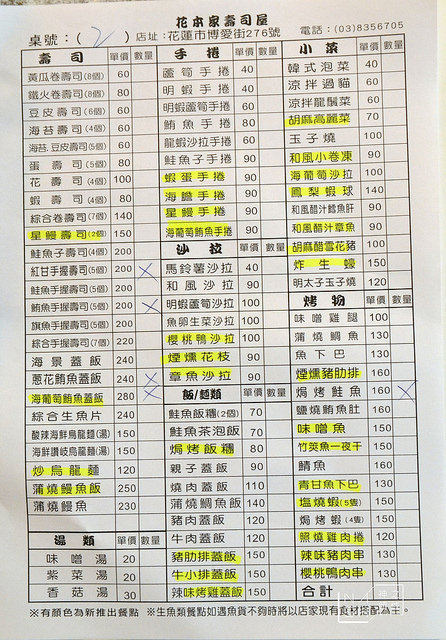 花本家壽司屋
桌號：( 2 ) 店址：花蓮市博愛街276號 電話：(03)8356705
壽司 單價 數量
黃瓜卷壽司(8個) 60
鐵火卷壽司(8個) 80
豆皮壽司(6個) 60
海苔壽司(4個) 60
海苔.豆皮壽司(5個) 60
蛋壽司(5個) 80
花壽司(4個) 100
蝦壽司(4個) 80
綜合卷壽司(7個) 140
星鰻壽司(2個) 150
鮭魚子壽司(4個) 200
紅甘手握壽司(5個) 200 X
鮭魚手握壽司(5個) 200
鮪魚手握壽司(5個) 200 X
旗魚手握壽司(5個) 200
綜合手握壽司(7個) 220
海景蓋飯 240
蔥花鮪魚蓋飯 240 X
海葡萄鮪魚蓋飯 280 X
綜合生魚片 240
酸辣海鮮烏龍麵(湯) 150
海鮮讚岐烏龍麵(湯) 150
炒烏龍麵 120
蒲燒鰻魚飯 250
蒲燒鰻魚 230
湯類 單價 數量
味噌湯 20
紫菜湯 20
香菇湯 30
手捲 單價 數量
蘆筍手捲 40
明蝦手捲 80
明蝦蘆筍手捲 60
鮪魚手捲 80
龍蝦沙拉手捲 60
鮭魚子手捲 90
蝦蛋手捲 90
海膽手捲 90
星鰻手捲 90
海葡萄鮪魚手捲 90
沙拉 單價 數量
馬鈴薯沙拉 40
和風沙拉 90
明蝦蘆筍沙拉 100
魚卵生菜沙拉 100
櫻桃鴨沙拉 100
煙燻花枝 90
章魚沙拉 90
飯/麵類 單價 數量
鮭魚飯糰(2個) 70
鮭魚茶泡飯 70
焗烤飯糰 80
親子蓋飯 90
燒肉蓋飯 110
蒲燒鯛魚飯 140
豬肉蓋飯 120
牛肉蓋飯 120
豬肋排蓋飯 150
牛小排蓋飯 150
辣味烤雞蓋飯 150
小菜 單價 數量
韓式泡菜 40
涼拌過貓 60
涼拌龍鬚菜 60
胡麻高麗菜 70
玉子燒 100
和風小卷凍 90
海葡萄沙拉 100
鳳梨蝦球 140
和風醋汁鱈魚肝 90
和風醋汁章魚 90
胡麻醋雪花豬 100
炸生蠔 150
明太子玉子燒 120
烤物 單價 數量
味噌雞腿 100
蒲燒鯛魚 130
魚下巴 130
煙燻豬肋排 160
焗烤鮭魚 160 X
鹽燒鮪魚肚 160
味噌魚 150
竹筴魚一夜干 150
鯖魚 160
青甘魚下巴 130
塩燒蝦(5隻) 150
焗烤蝦(4隻) 150
照燒雞肉捲 120
辣味豬肉串 130
櫻桃鴨肉串 130
合計
※有顏色為新推出餐點 ※生魚類餐點如遇魚貨不夠時將以店家現有食材搭配為主。